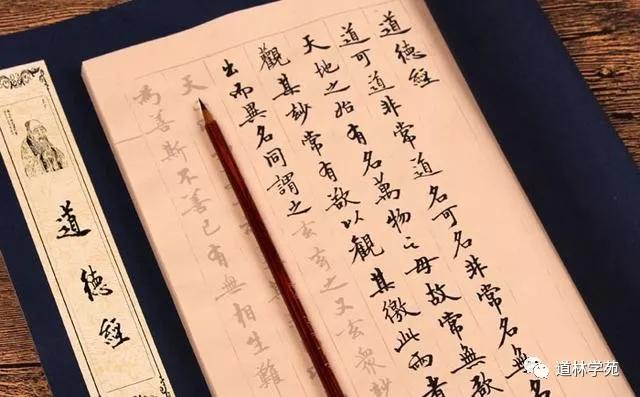 道德經
道可道非常道名可名非常名無名
天地之始有名萬物之母故常無欲
觀其玅常有欲以觀其徼此兩者
出而異名同謂之玄玄之又玄眾玅
天
為善斯不善已有無相生難
道德經
道林学苑